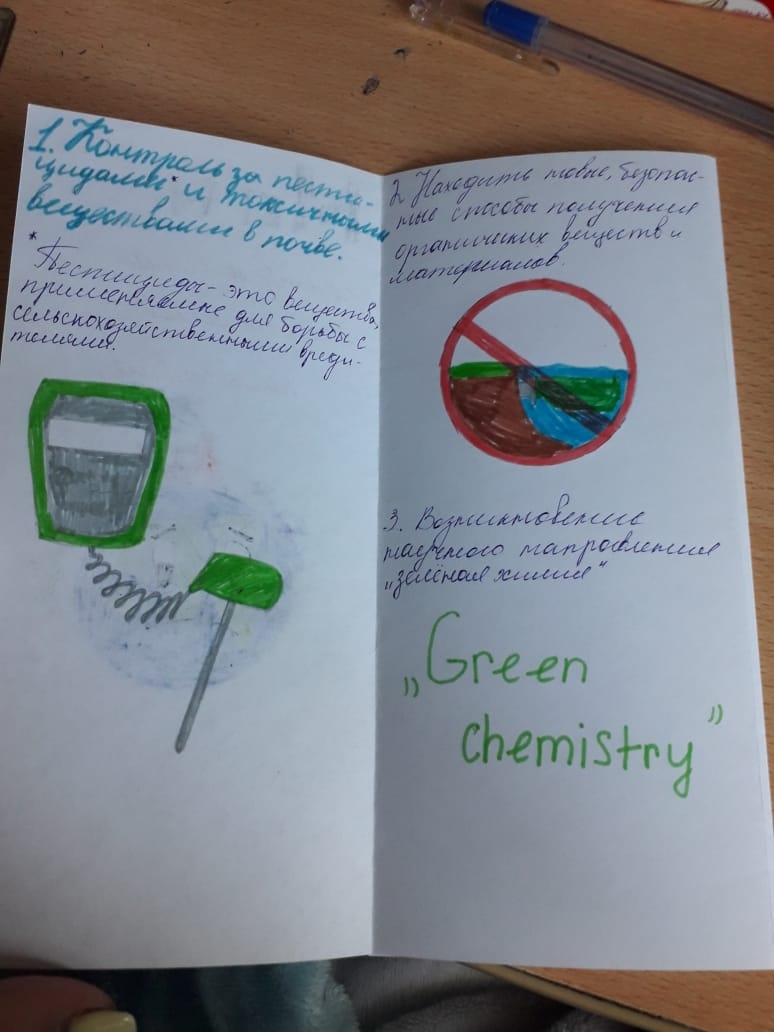 1. Контроль за пести-
цидами* и токсичными
веществами в почве.
* Пестициды - это вещества,
применяемые для борьбы с
сельскохозяйственными вреди-
телями.
2. Находить новые, безопас-
ные способы получения
органических веществ и
материалов.
3. Возникновение
научного направления
„зелёная химия"
„Green
chemistry"